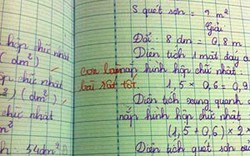 hộp chữ nhật
(dm²)
hộp chữ nhật
) (dm²)
chữ nhật
: 54dm²
con làm
bài rất tốt
S quét sơn = ? m²
Giải
Đổi: 8 dm = 0,8 m
Diện tích 1 mặt đáy
nắp hình hộp chữ nhật
1,5 × 0,6 = 0,9
Diện tích xung quanh
nắp hình hộp chữ nhật
(1,5 + 0,6) × 2 ×
Diện tích quét sơn